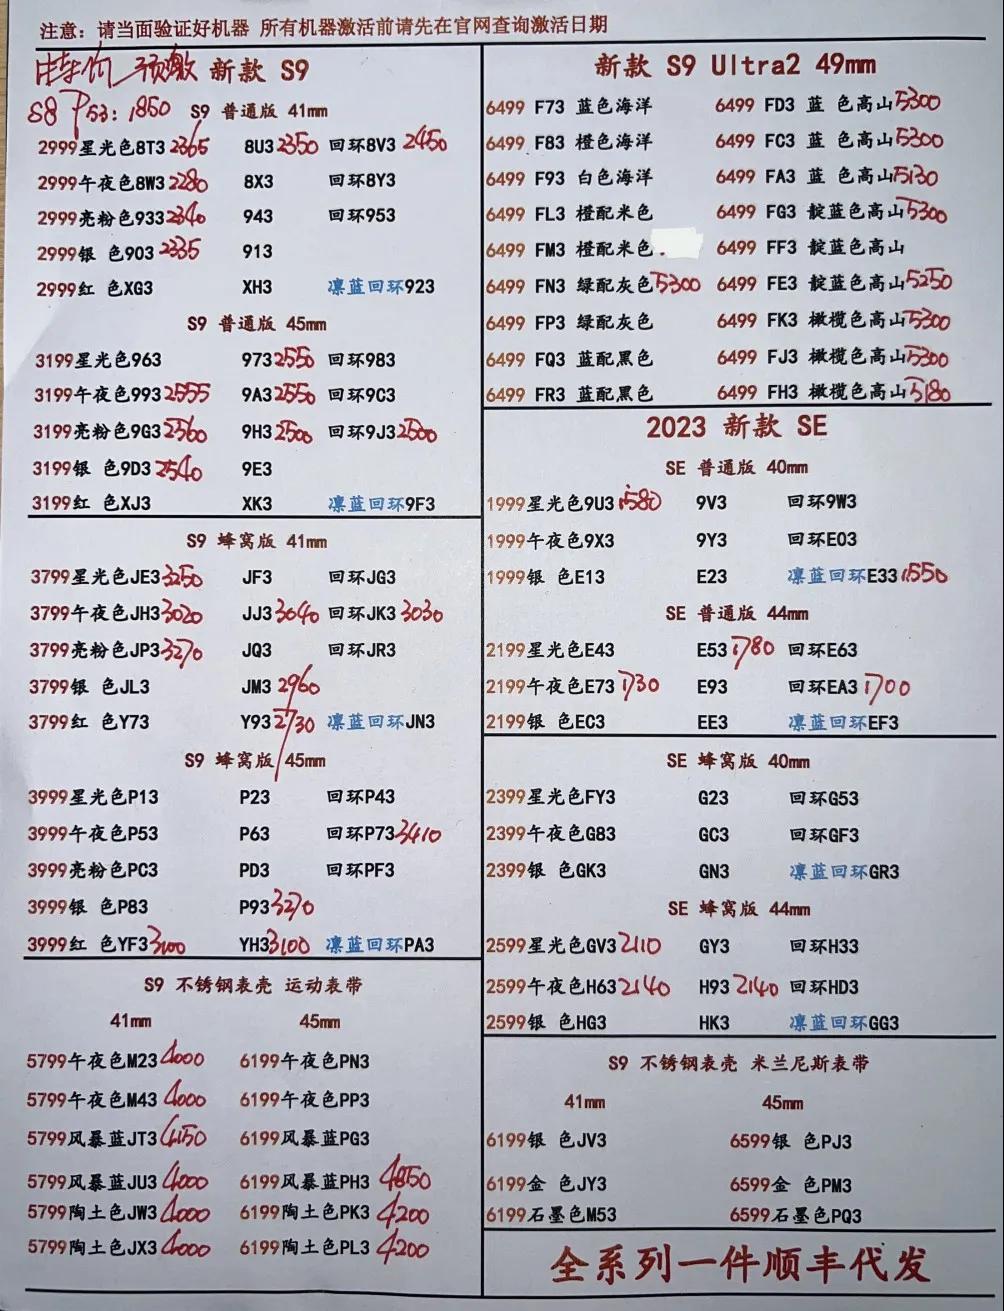 注意：请当面验证好机器 所有机器激活前请先在官网查询激活日期
特价 预激 新款 S9
S8 P53：1850 S9 普通版 41mm
2999星光色8T3 2365 8U3 2350 回环8V3 2450
2999午夜色8W3 2280 8X3 回环8Y3
2999亮粉色933 2340 943 回环953
2999银 色903 2335 913
2999红 色XG3 XH3 凛蓝回环923
S9 普通版 45mm
3199星光色963 973 2550 回环983
3199午夜色993 2555 9A3 2550 回环9C3
3199亮粉色9G3 2560 9H3 2500 回环9J3 2500
3199银 色9D3 2540 9E3
3199红 色XJ3 XK3 凛蓝回环9F3
S9 蜂窝版 41mm
3799星光色JE3 3250 JF3 回环JG3
3799午夜色JH3 3020 JJ3 3040 回环JK3 3030
3799亮粉色JP3 3270 JQ3 回环JR3
3799银 色JL3 JM3 2960
3799红 色Y73 Y93 2730 凛蓝回环JN3
S9 蜂窝版 45mm
3999星光色P13 P23 回环P43
3999午夜色P53 P63 回环P73 3410
3999亮粉色PC3 PD3 回环PF3
3999银 色P83 P93 3270
3999红 色YF3 3100 YH3 3100 凛蓝回环PA3
S9 不锈钢表壳 运动表带
41mm 45mm
5799午夜色M23 4000 6199午夜色PN3
5799午夜色M43 4000 6199午夜色PP3
5799风暴蓝JT3 4150 6199风暴蓝PG3
5799风暴蓝JU3 4000 6199风暴蓝PH3 4850
5799陶土色JW3 4000 6199陶土色PK3 4200
5799陶土色JX3 4000 6199陶土色PL3 4200
新款 S9 Ultra2 49mm
6499 F73 蓝色海洋 6499 FD3 蓝 色高山5300
6499 F83 橙色海洋 6499 FC3 蓝 色高山5300
6499 F93 白色海洋 6499 FA3 蓝 色高山5130
6499 FL3 橙配米色 6499 FG3 靛蓝色高山5300
6499 FM3 橙配米色 6499 FF3 靛蓝色高山
6499 FN3 绿配灰色5300 6499 FE3 靛蓝色高山5250
6499 FP3 绿配灰色 6499 FK3 橄榄色高山5300
6499 FQ3 蓝配黑色 6499 FJ3 橄榄色高山5300
6499 FR3 蓝配黑色 6499 FH3 橄榄色高山5180
2023 新款 SE
SE 普通版 40mm
1999星光色9U3 1580 9V3 回环9W3
1999午夜色9X3 9Y3 回环E03
1999银 色E13 E23 凛蓝回环E33 1550
SE 普通版 44mm
2199星光色E43 E53 1780 回环E63
2199午夜色E73 1730 E93 回环EA3 1700
2199银 色EC3 EE3 凛蓝回环EF3
SE 蜂窝版 40mm
2399星光色FY3 G23 回环G53
2399午夜色G83 GC3 回环GF3
2399银 色GK3 GN3 凛蓝回环GR3
SE 蜂窝版 44mm
2599星光色GV3 2110 GY3 回环H33
2599午夜色H63 2140 H93 2140 回环HD3
2599银 色HG3 HK3 凛蓝回环GG3
S9 不锈钢表壳 米兰尼斯表带
41mm 45mm
6199银 色JV3 6599银 色PJ3
6199金 色JY3 6599金 色PM3
6199石墨色M53 6599石墨色PQ3
全系列一件顺丰代发